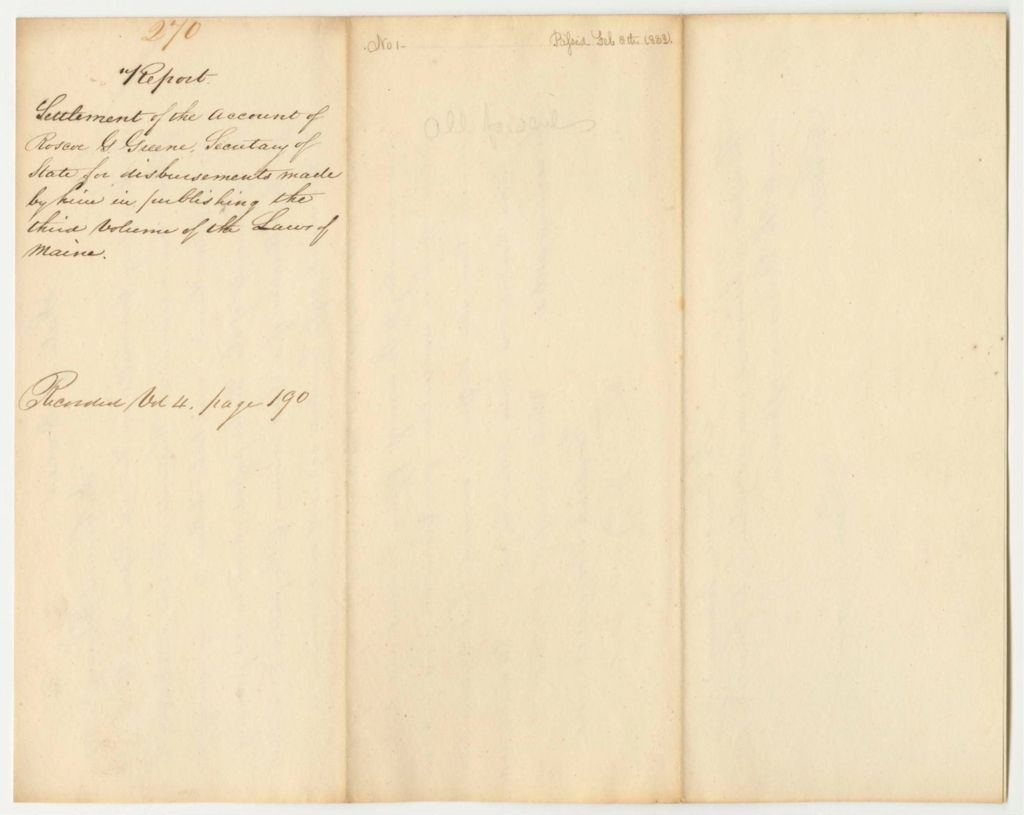 270
Report
Settlement of the Account of
Roscoe G. Greene, Secretary of
State for disbursements made
by him in publishing the
third Volume of the Laws of
Maine.
Recorded Vol 4. page 190
No 1-
Passed Feb 8th 1832.
All passed